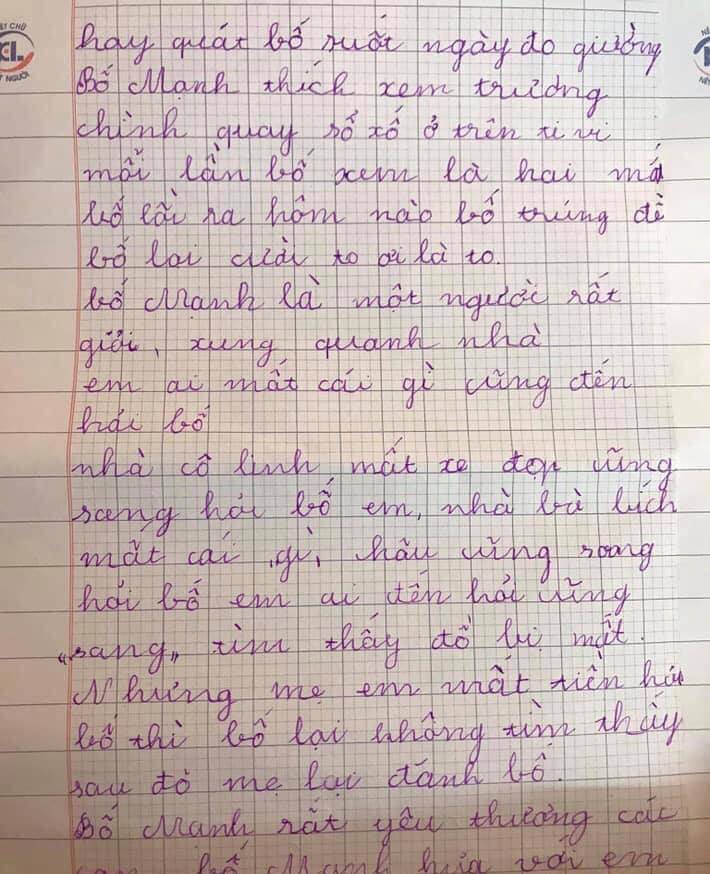 hay quát bố suốt ngày đo giường
Bố Mạnh thích xem trương
chình quay số xố ở trên ti vi
mỗi lần bố xem là hai má
bố lồi ra hôm nào bố trúng đề
bố lại cười to ơi là to.
bố Mạnh là một người rất
giỏi, xung quanh nhà
em ai mất cái gì cũng đến
hỏi bố
nhà cô linh mất xe đạp cũng
sang hỏi bố em, nhà bà bích
mất cái gì, hâu cũng soang
hỏi bố em ai đến hỏi cũng
"sang" tìm thấy đồ bị mất.
Nhưng mẹ em mất tiền hỏi
bố thì bố lại không tìm thấy
sau đó mẹ lại đánh bố.
Bố Mạnh rất yêu thương các
bố Mạnh hứa với em
NGƯỜI